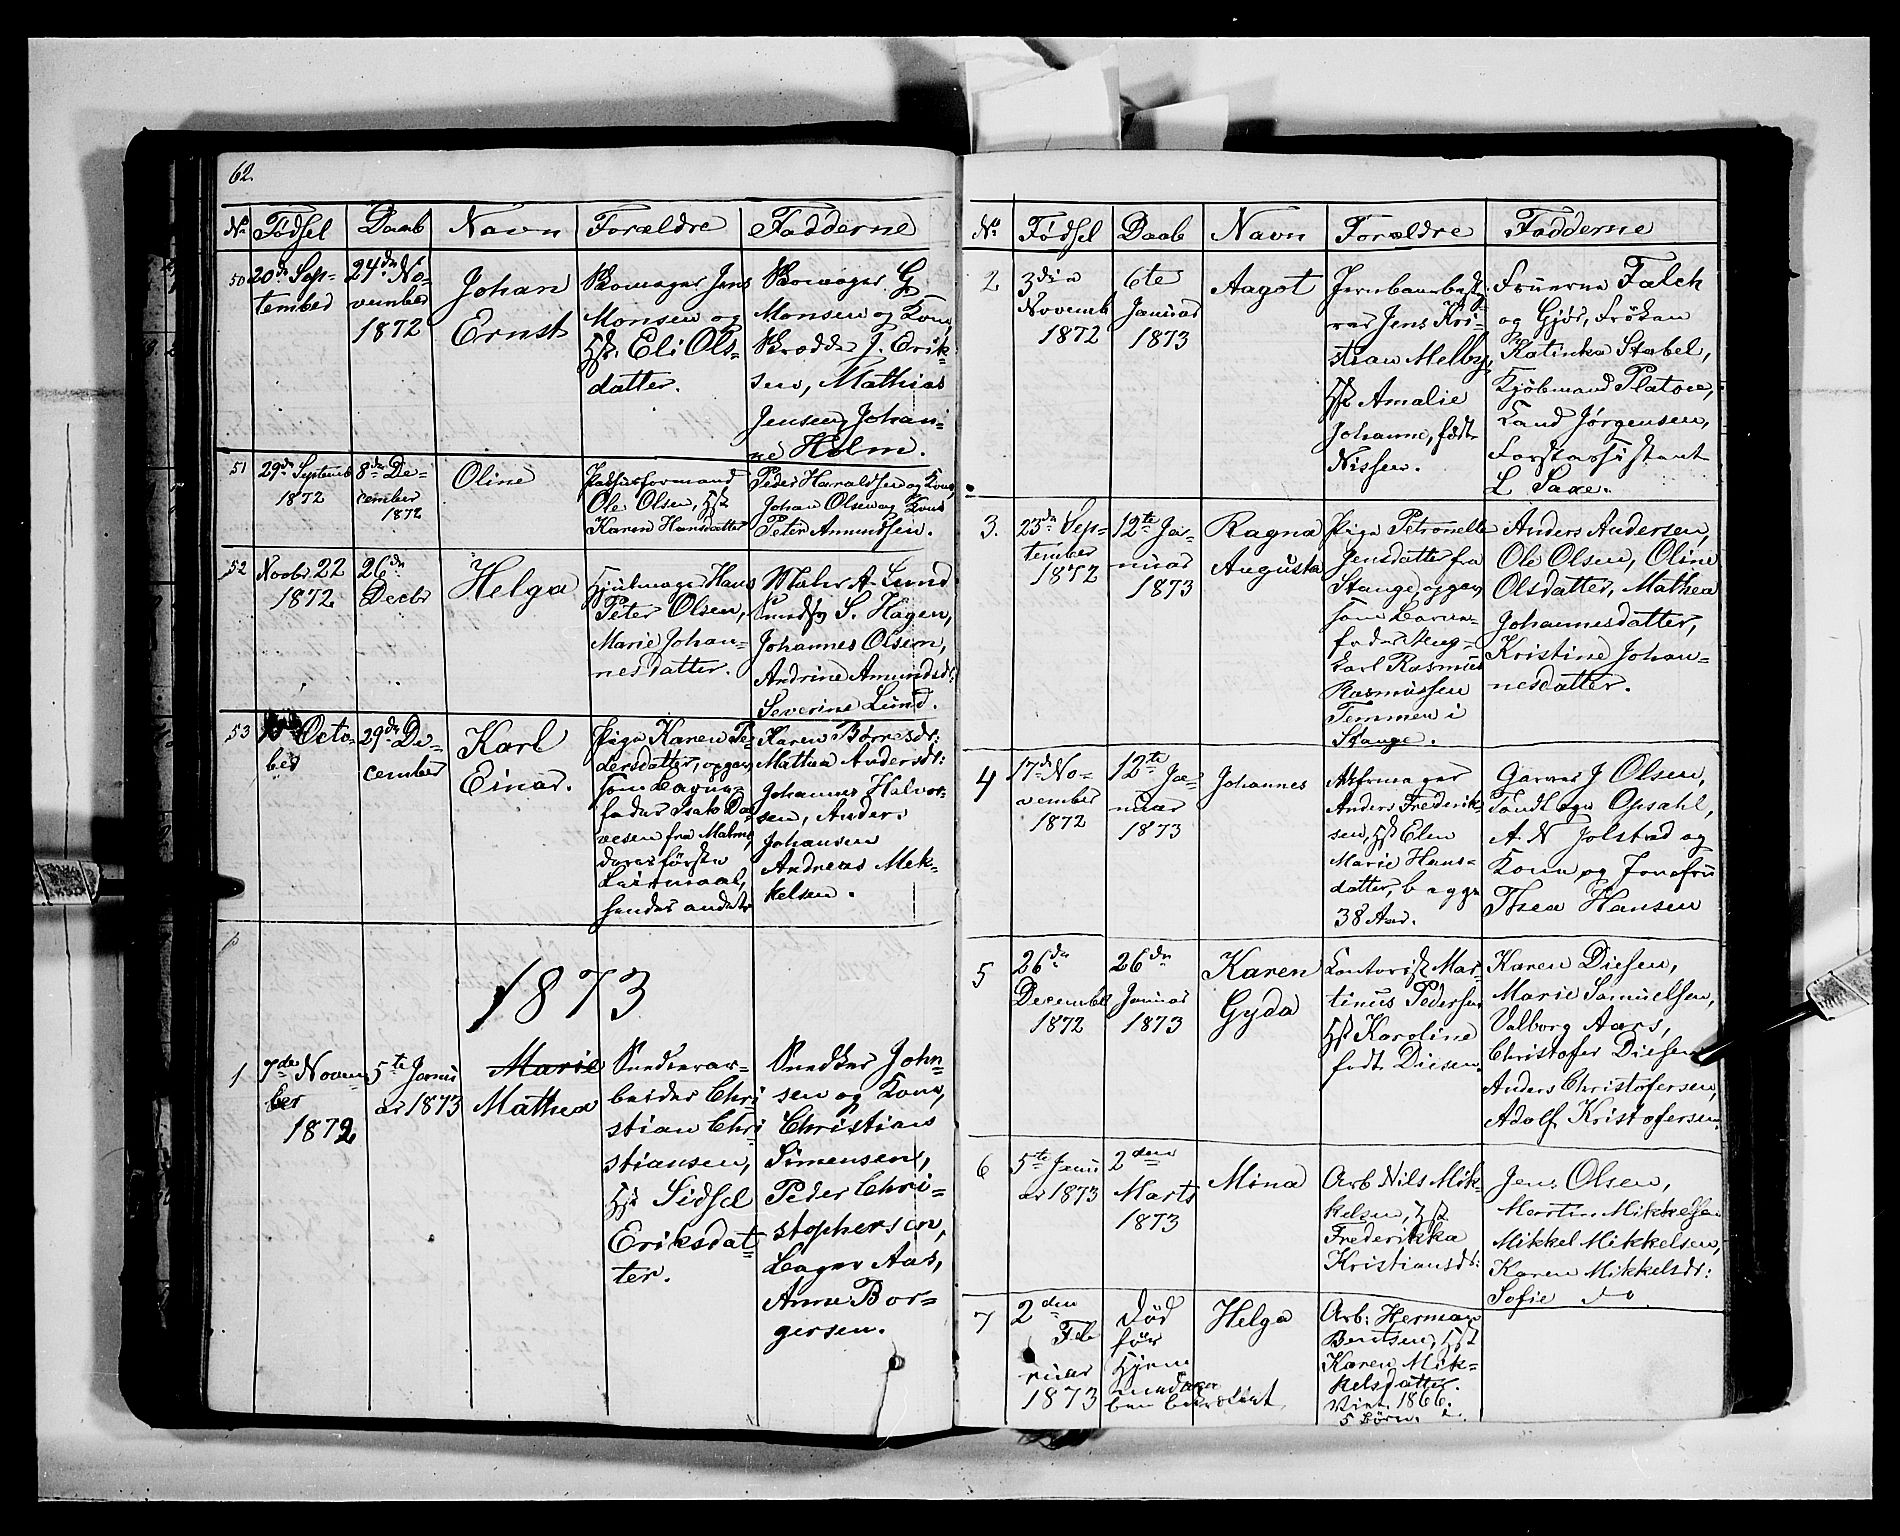 62.
No Fødsel Daab Navn Forældre Fadderne
50 20de Sep-
tember
24de No-
vember
1872
Johan
Ernst
Skomager Jens
Monsen og
Hst. Eli Ols-
datter.
Skomager G
Monsen og Kone,
Skrædder J. Erik-
sen, Mathias
Jensen, Johan-
ne Holm.
51 29de Septemb
1872
8de De-
cember
1872
Oline
Ole Olsen, Hst
Karen Hansdatter
Peder Haraldsen og Kone,
Johan Olsen og Kone
Peter Amundsen.
52 Novbr 22
1872
26de
Decbr
Helga
Hjulmager Hans
Peter Olsen,
Marie Johan-
nesdatter.
Maler A. Lund
S. Hagen,
Johannes Olsen,
Andrine Amundsdr:
Severine Lund.
53 Octo-
ber
29de De-
cember
Karl
Einar.
Pige Karen Pe-
dersdatter, opgav
som Barne-
fader Isak
fra Malmø,
deres første
Leiermaal,
hendes andet
Karen Børresdr:
Mathea Andersdr:
Johannes Halvor-
sen, Anders
Johansen
Andreas Mek-
kelsen.
1873
1 7de Novem-
ber
1872
5te Janu
ar 1873
Marie
Mathea
Snedkerar-
beider Chri
stian Chri
stiansen,
Hst Sidsel
Eriksdat-
ter.
Snedker John-
sen og Kone,
Christian
Simensen,
Peder Chri-
stophersen,
Bager Aas,
Anne Bor-
gersen.
No Fødsel Daab Navn Forældre Fadderne
2 3die
Novemb
1872
6te
Januar
1873
Aagot
Jernbanebesty
rer Jens Kri-
stian Melby,
Hst Amalie
Johanne, født
Nissen.
Fruerne Falch
og Gjør, Frøken
Katinka Stabel,
Kjøbmand Platou,
Cand Jørgensen,
Forstassistent
L Saxe.
3. 23de Sep-
tember
1872
12te Ja-
nuar
1873
Ragna
Augusta
Pige Petronelle
Jensdatter fra
Stange, opgav
som Barne-
fader Ung-
karl Rasmus
Rasmussen
Temmen i
Stange.
Anders Andersen,
Ole Olsen, Oline
Olsdatter, Mathea
Johannesdatter,
Kristine Johan-
nesdatter.
4 17de No-
vember
1872
12te Ja-
nuar
1873
Johannes
Anders Frederik-
sen, Hst Elen
Marie Hans-
datter, begge
38 Aar.
Garver J Olsen,
Opsahl,
A. N Jolstad og
Kone og Jomfru
Thea Hansen
5 26de
December
1872
26de
Januar
1873
Karen
Gyda
Kontorist Mar-
tinus Pedersen
Hst Karoline
født Diesen.
Karen Diesen,
Marie Samuelsen,
Valborg Aars,
Christofer Diesen
Anders Christofersen,
Adolf Kristofersen.
6 5te Janu
ar 1873
2den
Marts
1873
Mina
Arb Nils Mik-
kelsen, Hst
Frederikka
Kristiansdr:
Jens Olsen,
Martin Mikkelsen
Mikkel Mikkelsen,
Karen Mikkelsdr:
Sofie do
7 2den
Feb
ruar
1873
Død
før
Hjem
medaaben
Helga
Arb: Herman
Bentsen, Hst
Karen Mik-
kelsdatter.
Viet 1866.
5 Børn.